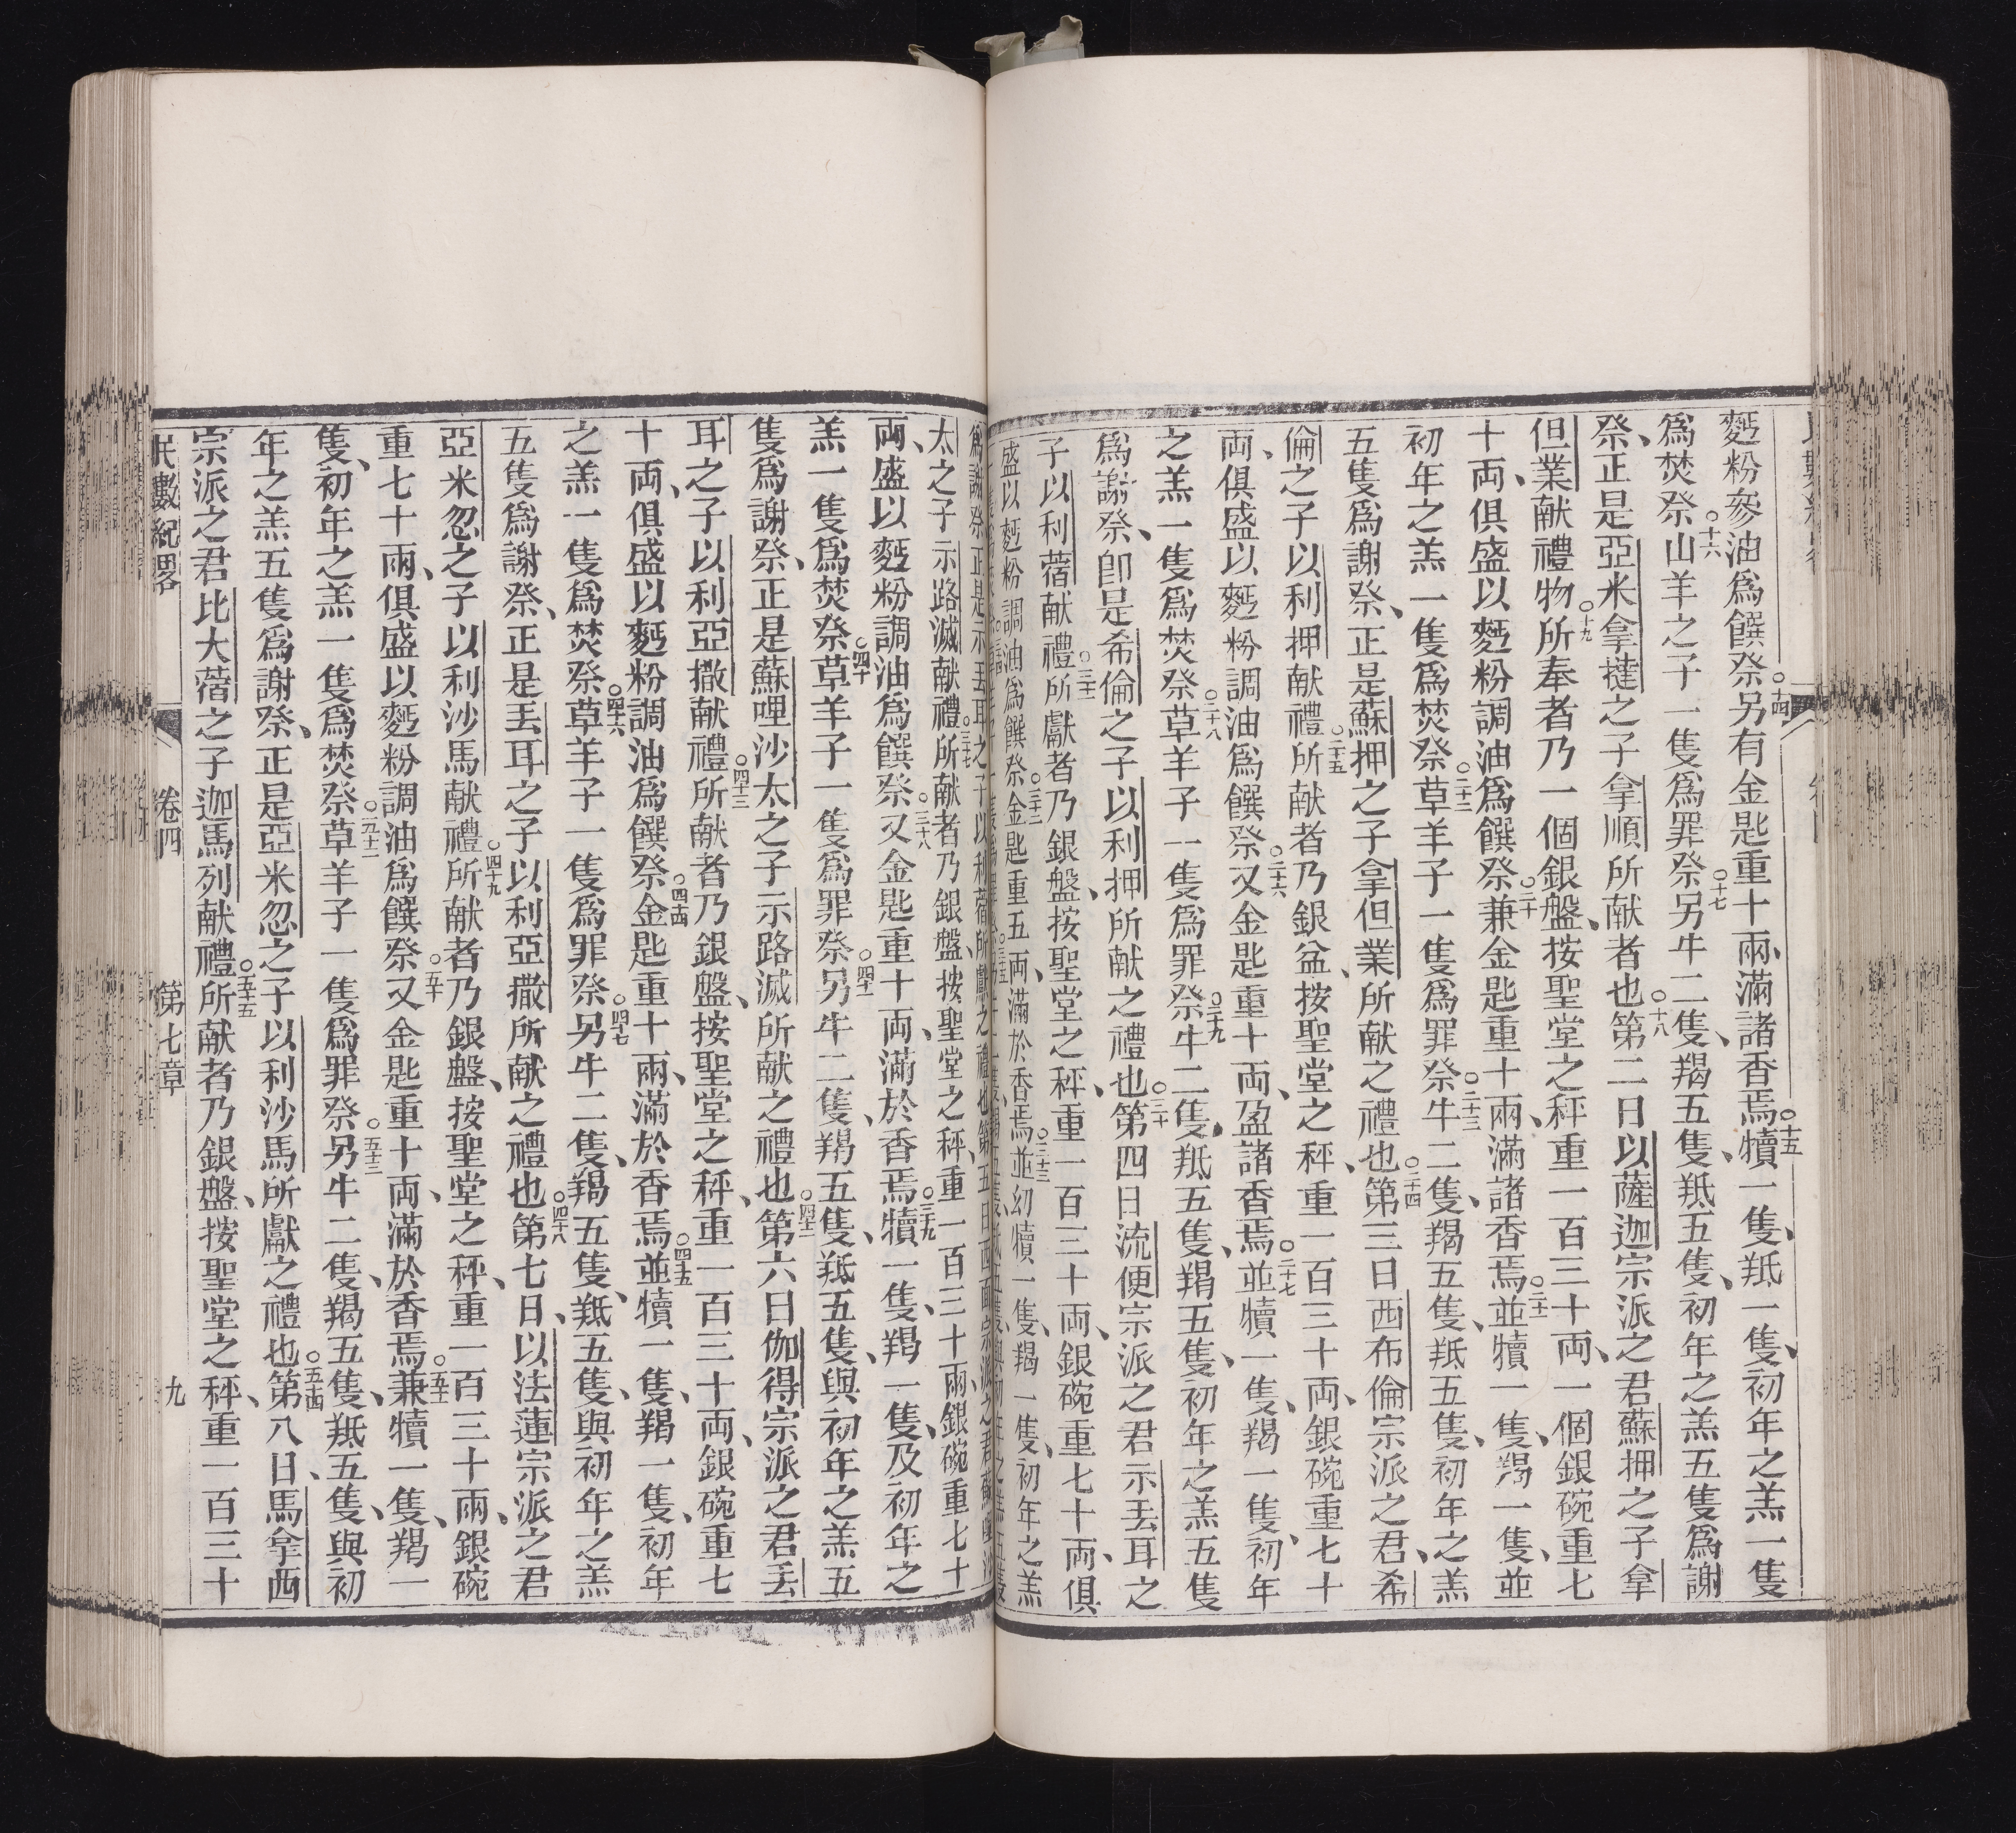 麪粉參油爲饌祭○十四另有金匙重十兩、滿諸香焉○十五犢一隻、羝一隻、初年之羔一隻
爲焚祭○十六山羊之子一隻爲罪祭○十七另牛二隻、羯五隻、羝五隻、初年之羔五隻爲謝
祭、正是亞米拿撻之子拿順所献者也○十八第二日以薩迦宗派之君蘇押之子拿
但業献禮物○十九所奉者乃一個銀盤、按聖堂之秤重一百三十両、一個銀碗重七
十両、俱盛以麪粉調油爲饌祭○二十兼金匙重十兩、滿諸香焉○二十一並犢一隻、羯一隻、並
初年之羔一隻爲焚祭○二十二草羊子一隻爲罪祭○二十三牛二隻、羯五隻、羝五隻、初年之羔
五隻爲謝祭、正是蘇押之子拿但業所献之禮也○二十四第三日西布倫宗派之君、希
倫之子以利押献禮○二十五所献者乃銀盆、按聖堂之秤、重一百三十両、銀碗重七十
両、俱盛以麪粉調油爲饌祭○二十六又金匙重十両、盈諸香焉○二十七並犢一隻、羯一隻、初年
之羔一隻爲焚祭○二十八草羊子一隻爲罪祭○二十九牛二隻、羝五隻、羯五隻、初年之羔五隻
爲謝祭、卽是希倫之子以利押所献之禮也○三十第四日流便宗派之君示丟耳之
子以利蓿献禮○三十一所獻者乃銀盤、按聖堂之秤、重一百三十両、銀碗重七十両、俱
盛以麪粉調油爲饌祭○三十二金匙重五両、滿於香焉○三十三並幼犢一隻、羯一隻、初年之羔
爲謝祭正是示丟耳之子以利蓿所獻之禮也
太之子示路滅献禮○三十七所献者乃銀盤、按聖堂之秤、重一百三十兩、銀碗重七十
兩、盛以麪粉調油爲饌祭○三十八又金匙重十両、滿於香焉○三十九犢一隻、羯一隻、及初年之
羔一隻爲焚祭○四十草羊子一隻爲罪祭○四十一另牛二隻、羯五隻、羝五隻、與初年之羔五
隻爲謝祭、正是蘇哩沙太之子示路滅所献之禮也○四十二第六日伽得宗派之君丟
耳之子以利亞撒献禮○四十三所献者乃銀盤、按聖堂之秤、重一百三十両、銀碗重七
十両、俱盛以麪粉調油爲饌祭○四十四金匙重十兩、滿於香焉○四十五並犢一隻、羯一隻、初年
之羔一隻爲焚祭○四十六草羊子一隻爲罪祭○四十七另牛二隻、羯五隻、羝五隻、與初年之羔
五隻爲謝祭、正是丟耳之子以利亞撒所献之禮也○四十八第七日、以法蓮宗派之君
亞米忽之子以利沙馬献禮○四十九所献者乃銀盤、按聖堂之秤、重一百三十兩、銀碗
重七十兩、俱盛以麪粉調油爲饌祭○五十又金匙重十両、滿於香焉○五十一兼犢一隻、羯一
隻、初年之羔一隻爲焚祭○五十二草羊子一隻爲罪祭○五十三另牛二隻、羯五隻、羝五隻、與初
年之羔五隻爲謝祭、正是亞米忽之子以利沙馬所獻之禮也○五十四第八日、馬拿西
宗派之君比大蓿之子迦馬列献禮○五十五所献者乃銀盤、按聖堂之秤、重一百三十
民數紀畧 卷四 第七章 九